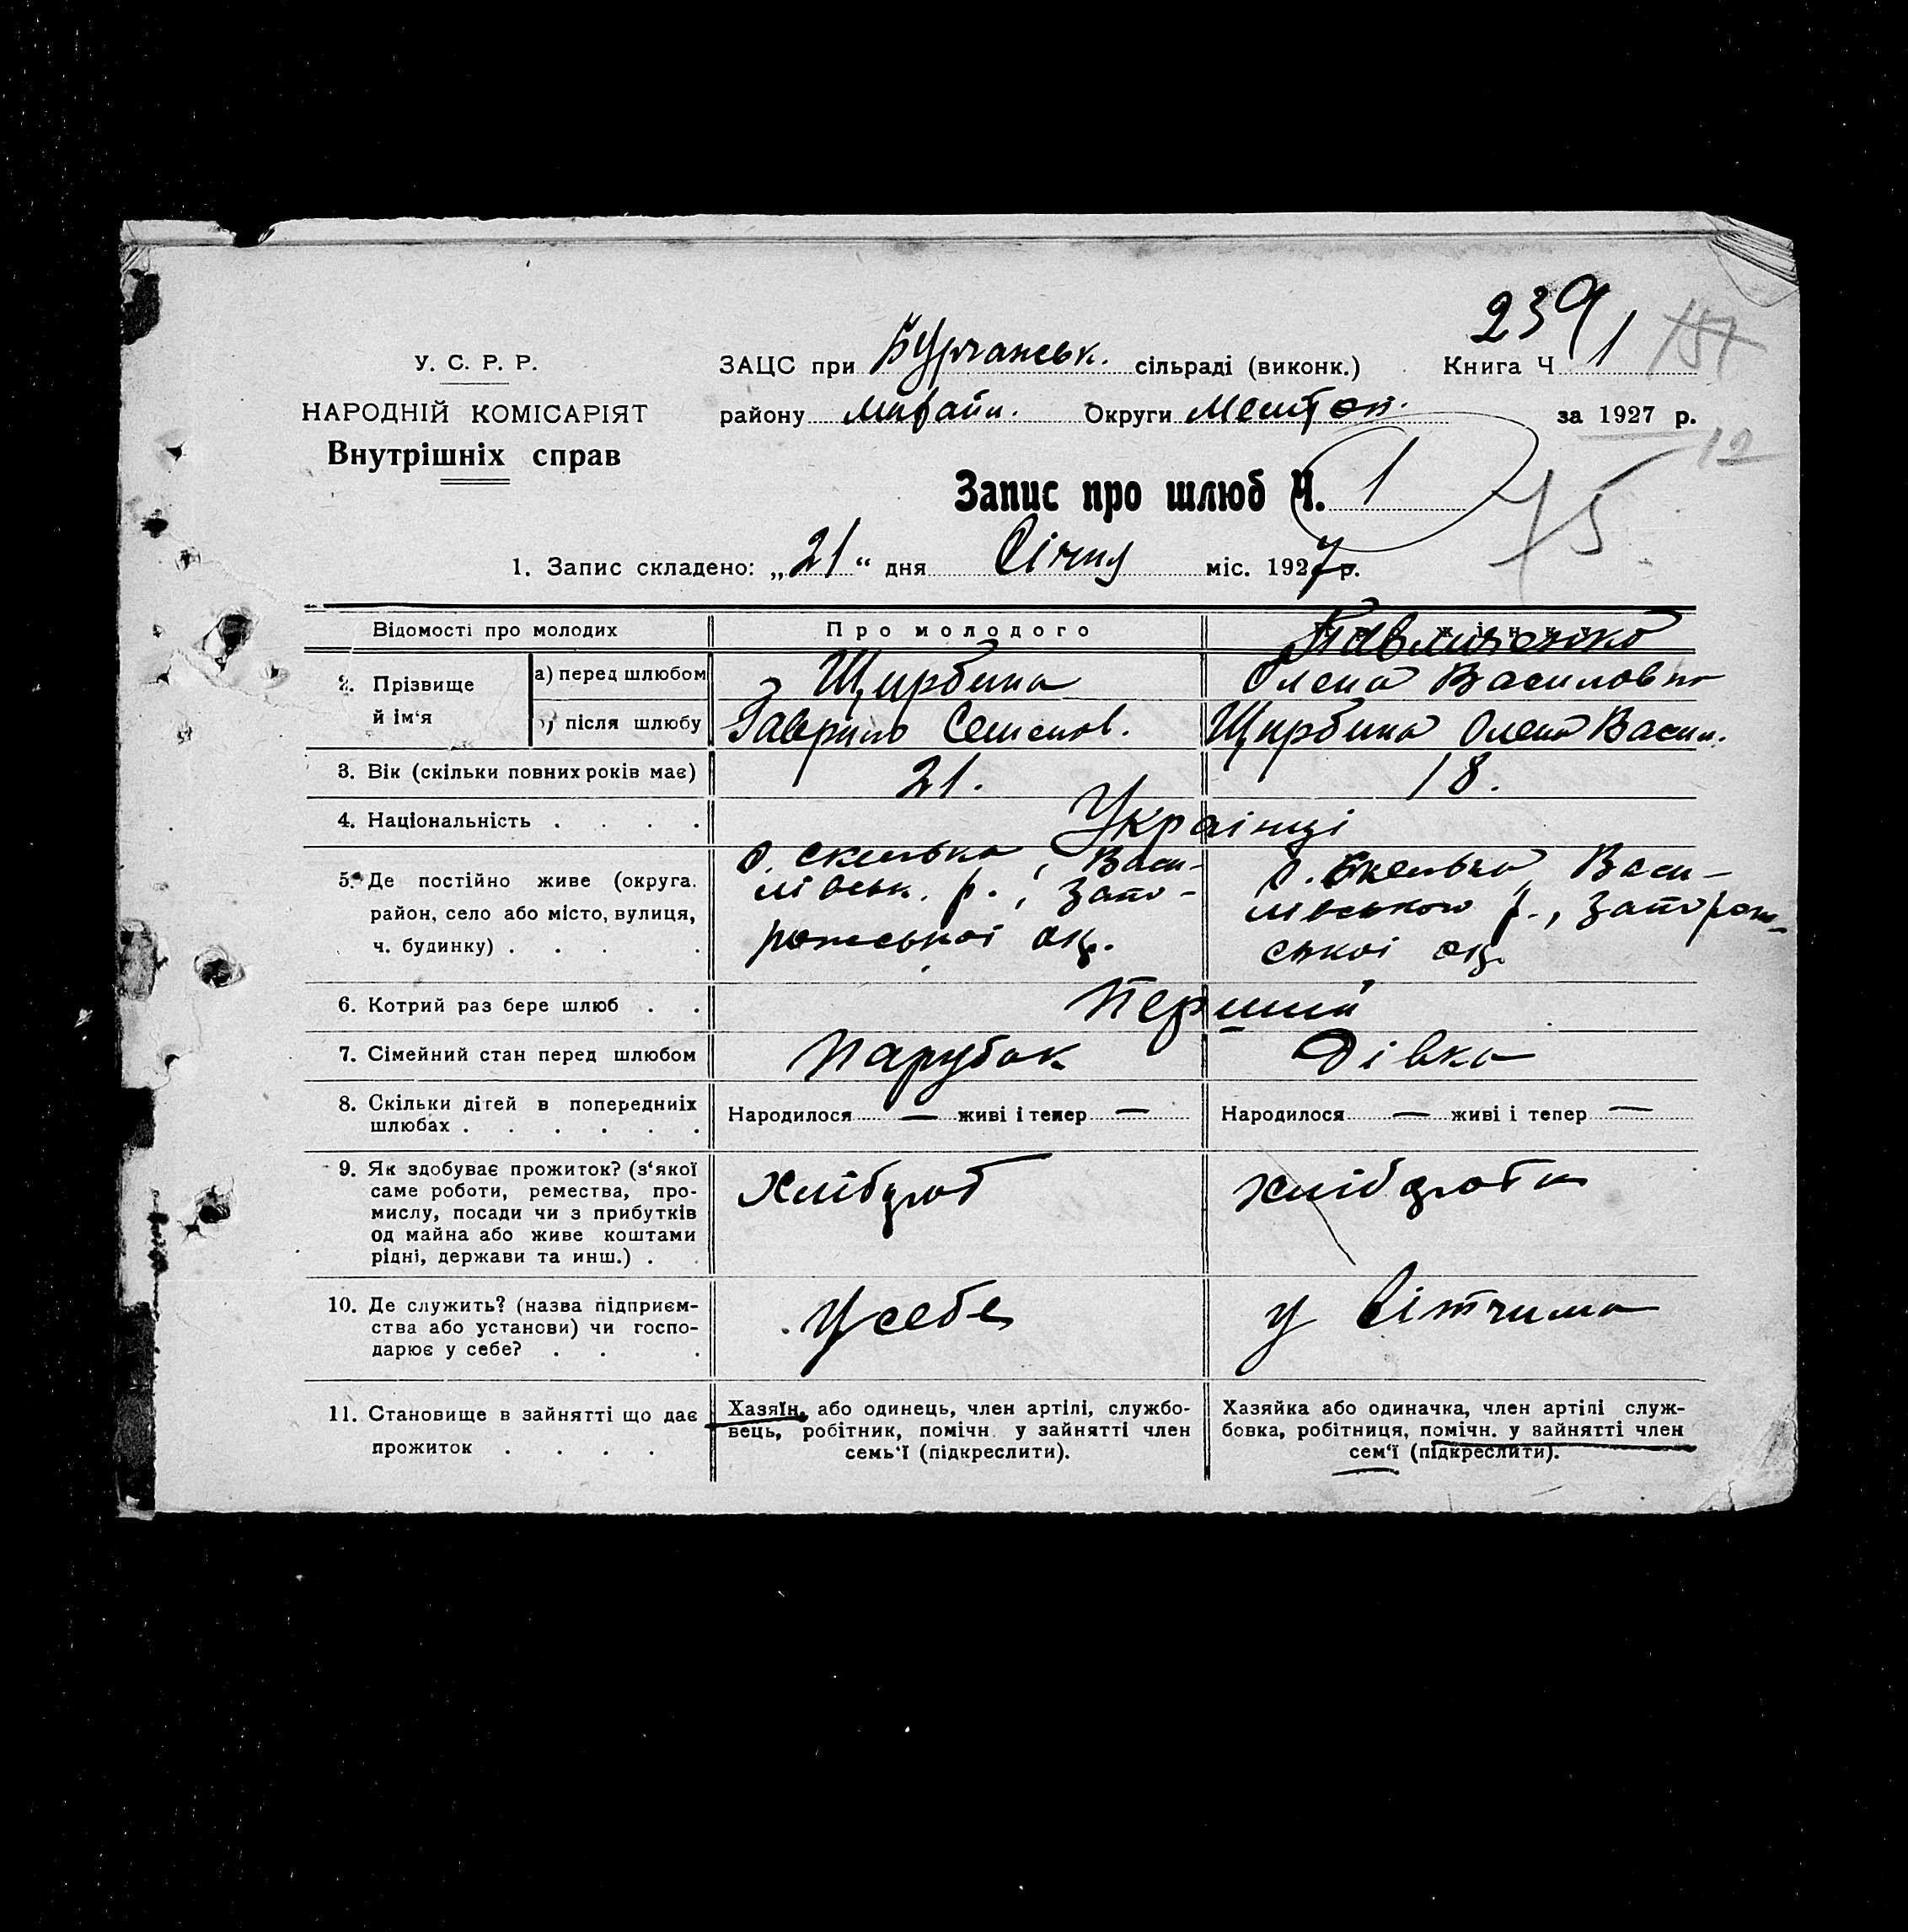 239
У. С. Р. Р.
ЗАЦС при Бурчанськ. сільраді (виконк.) Книга Ч 1 157
НАРОДНІЙ КОМІСАРІЯТ
району Михайл. Округи Мелітоп. за 1927 р.
Внутрішніх справ
12
Запис про шлюб Ч. 1
15
1. Запис складено: „21“ дня Січня міс. 1927 р.
Відомості про молодих Про молодого
Павличенко
2. Прізвище й ім‘я а) перед шлюбом Щирбина Олена Василовна
після шлюбу Гаврило Семенов. Щирбина Олена Васил.
3. Вік (скільки повних років має) 21. 18.
4. Національність . . . . Українці
5. Де постійно живе (округа.
район, село або місто, вулиця,
ч. будинку) . . . .
с. Скелька, Васи-
лівськ. р., Запо-
рожської окр.
с. Скелька, Васи-
лівського р., Запорож-
ської окр.
6. Котрий раз бере шлюб . . Перший
7. Сімейний стан перед шлюбом Парубок Дівка
8. Скільки дітей в попередниіх
шлюбах . . . . . .
Народилося — живі і тепер —
Народилося — живі і тепер —
9. Як здобуває прожиток? (з‘якої
саме роботи, ремества, про-
мислу, посади чи з прибутків
од майна або живе коштами
рідні, держави та инш.) .
Хлібороб
хлібороб
10. Де служить? (назва підприєм-
ства або установи) чи госпо-
дарює у себе? . . .
У себе
у Вітчима
11. Становище в зайнятті що дає
прожиток . . . .
Хазяїн, або одинець, член артілі, службо-
вець, робітник, помічн. у зайнятті член
семь‘ї (підкреслити).
Хазяйка або одиначка, член артілі служ-
бовка, робітниця, помічн. у зайнятті член
сем‘ї (підкреслити).